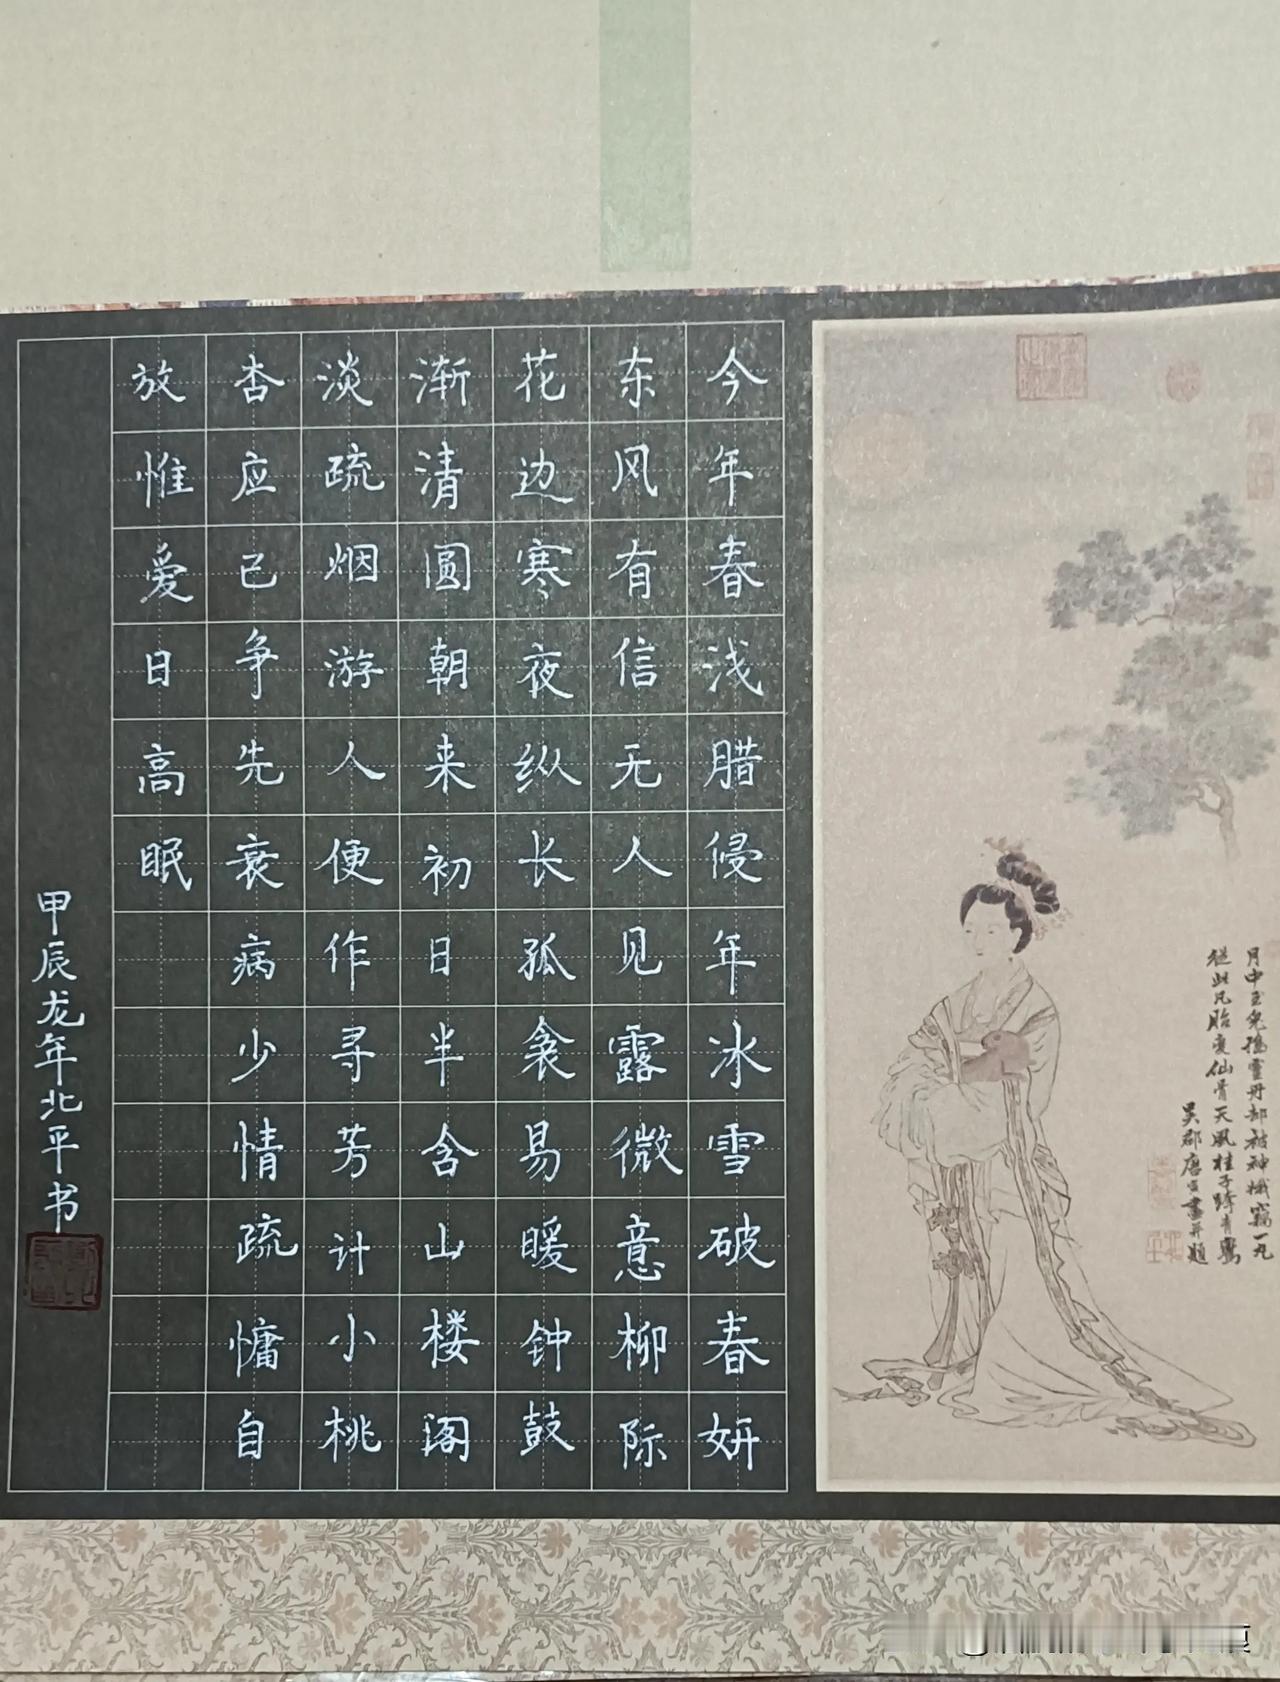 月中玉兔搗靈丹却被神娥竊一丸
從此凡胎變仙骨天風桂子跨青鸞
吳郡唐寅畫并題
今年春浅腊侵年冰雪破春妍
东风有信无人见露微意柳际
花边寒夜纵长孤衾易暖钟鼓
渐清圆朝来初日半含山楼阁
淡疏烟游人便作寻芳计小桃
杏应已争先衰病少情疏慵自
放惟爱日高眠
甲辰龙年北平书